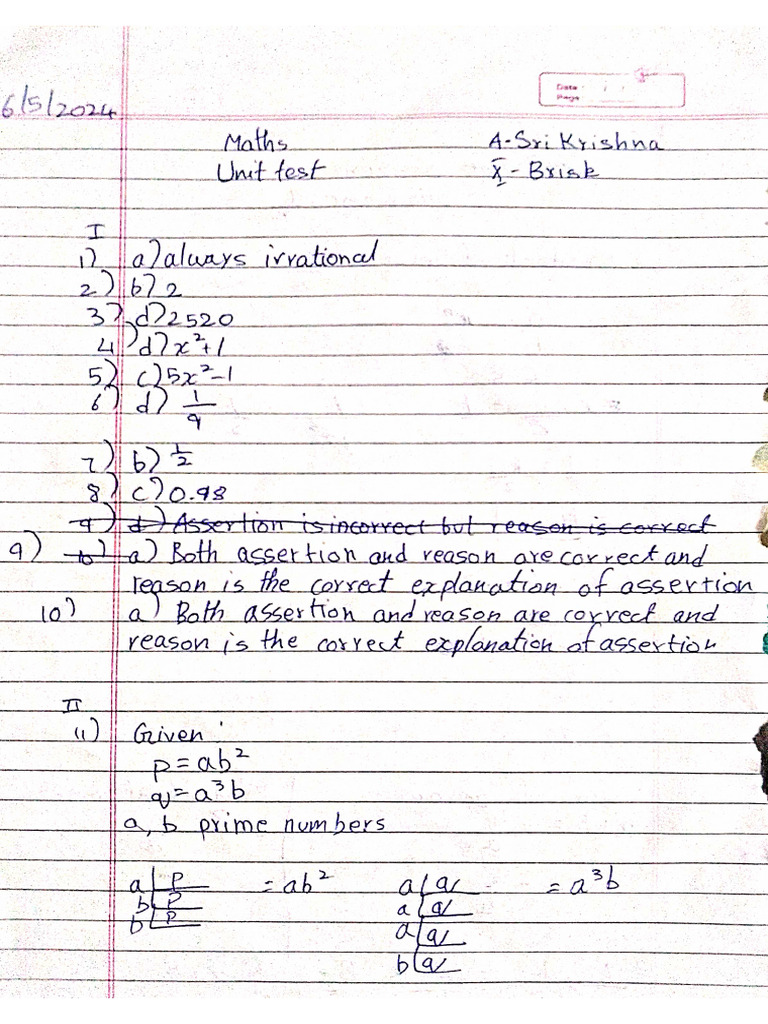 Date
Page
6/5/2024
Maths A-Sri Krishna
Unit test X - Brisk
I
1) a) always irrational
2) b) 2
3) d) 2520
4) d) x²+1
5) c) 5x²-1
6) d) 1/9
7) b) 1/2
8) c) 0.98
9) d) Assertion is incorrect but reason is correct
9) 10) a) Both assertion and reason are correct and
reason is the correct explanation of assertion
10) a) Both assertion and reason are correct and
reason is the correct explanation of assertion
II
11) Given:
p=ab²
q=a³b
a, b prime numbers
a p = ab² a q = a³b
b p a q
b p a q
b q